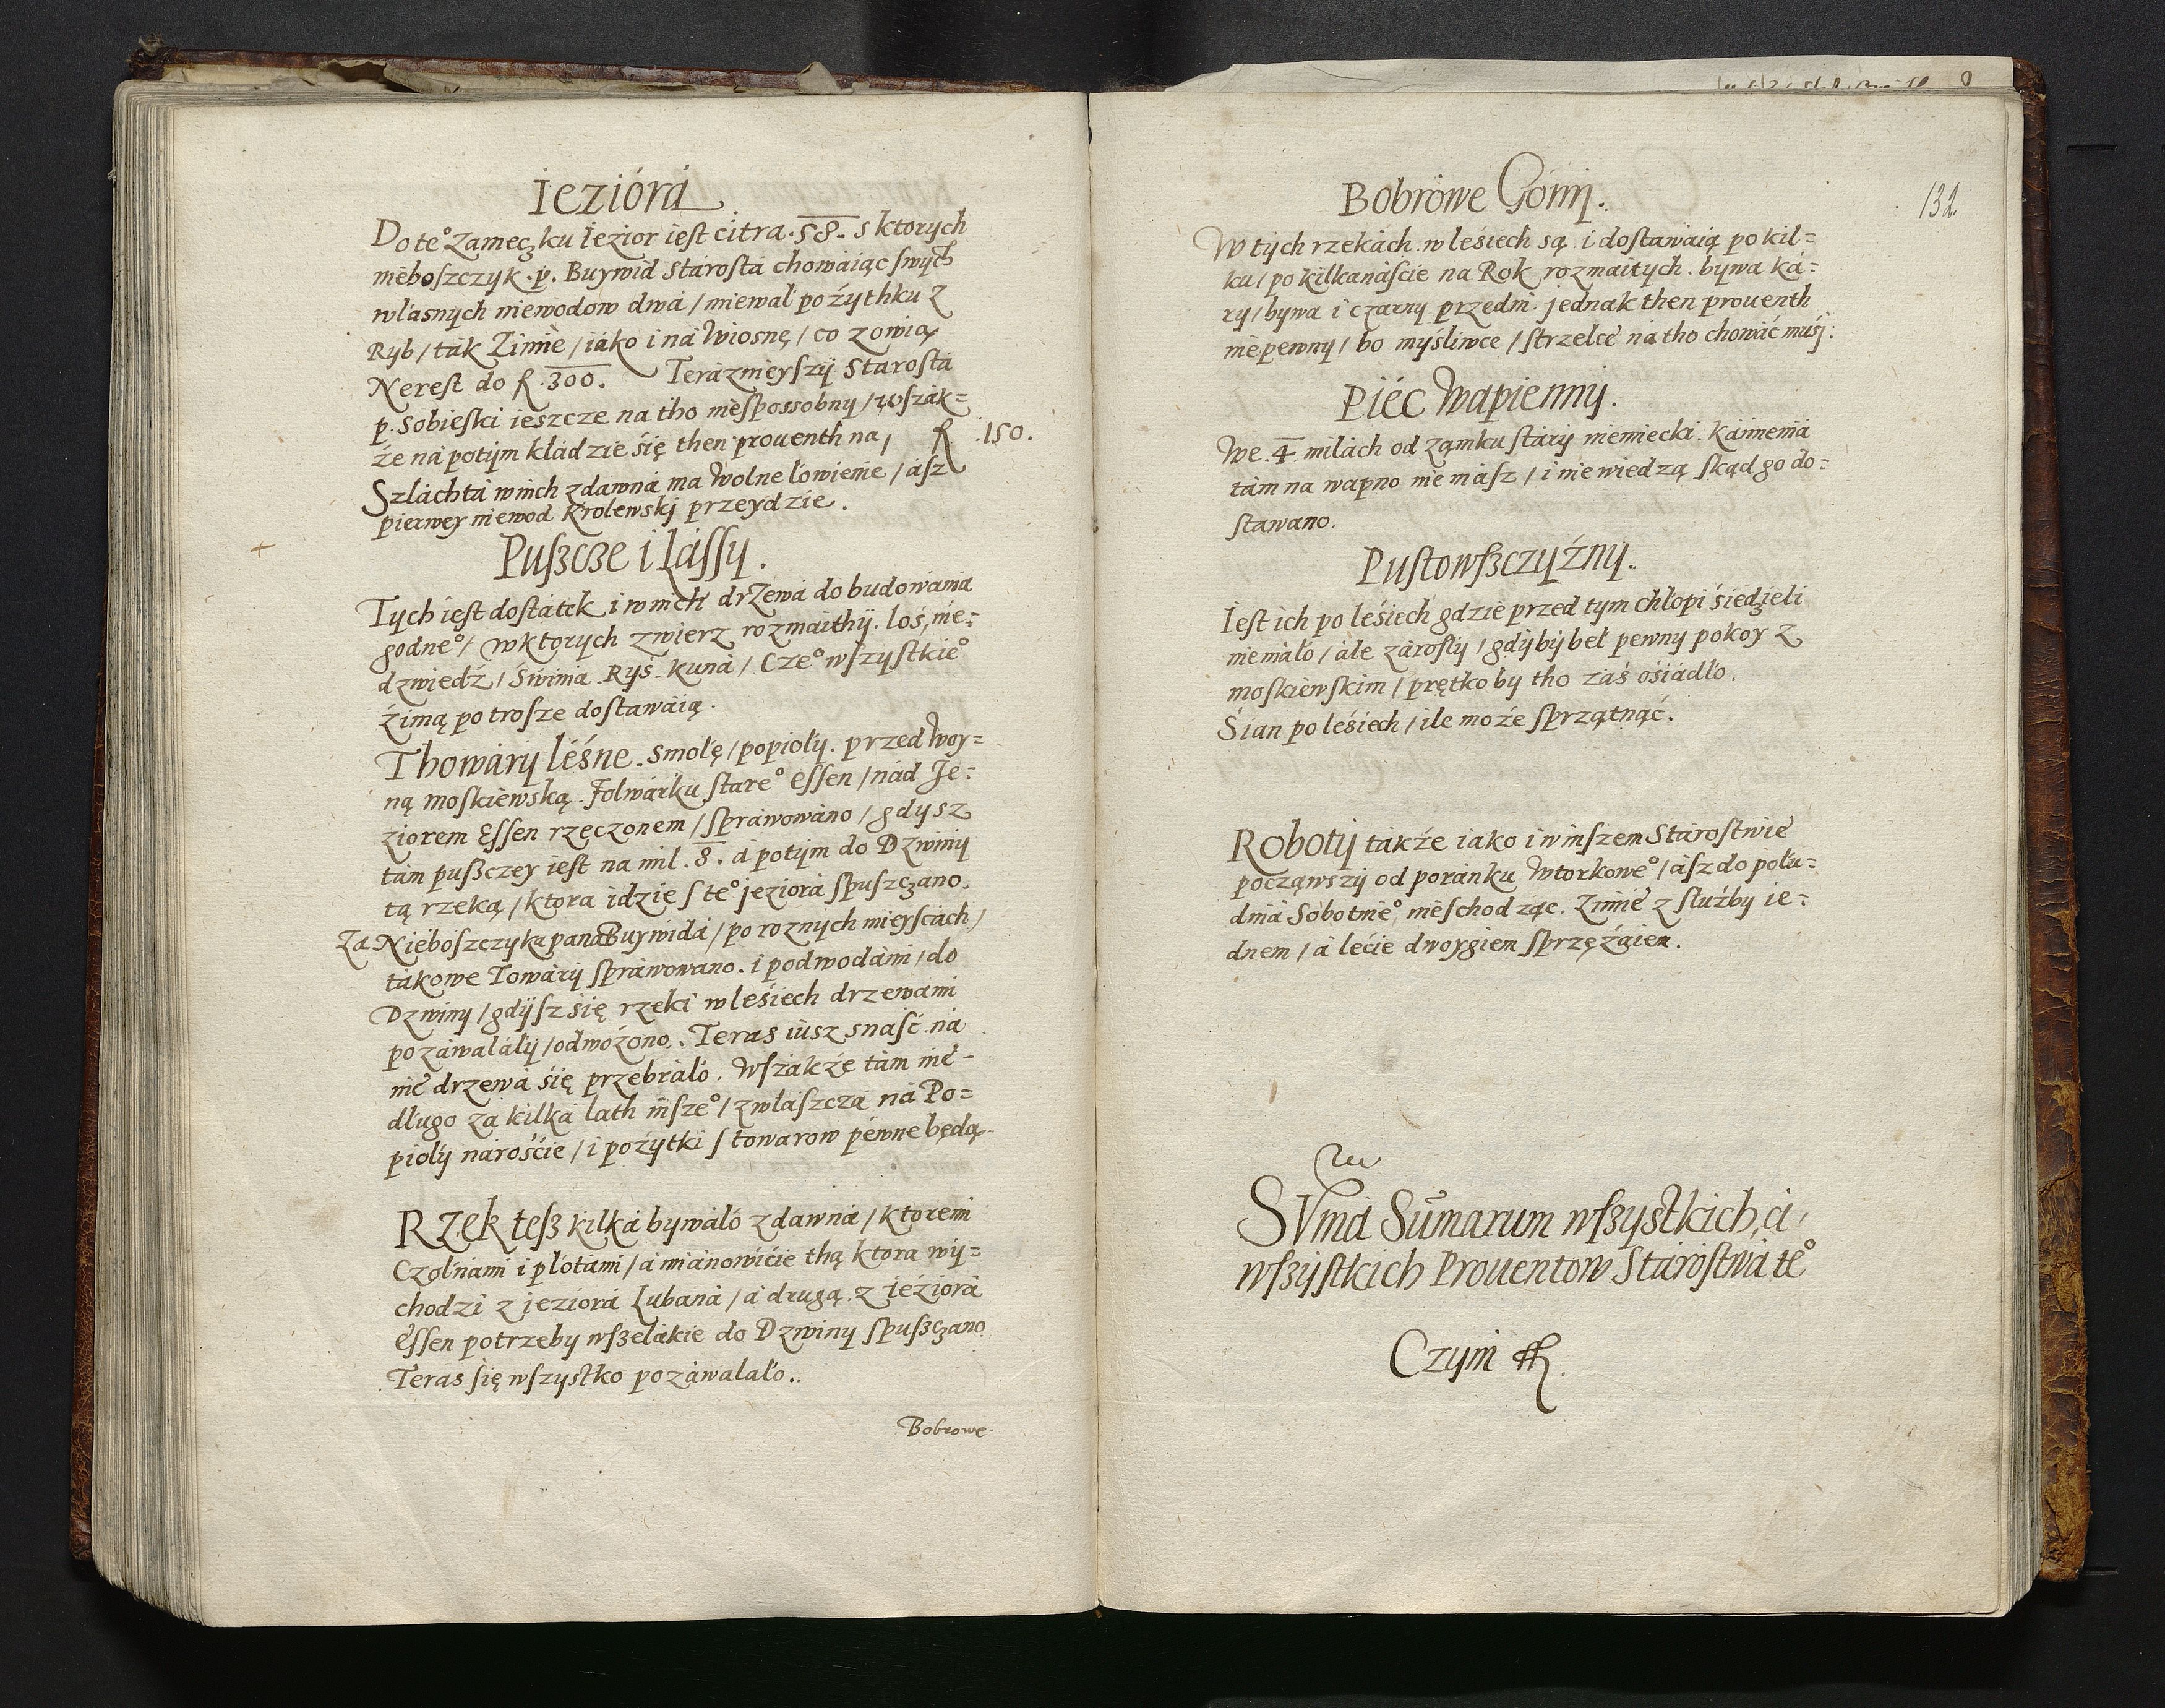 Ieziórá
Do te° Zameczku Iezior iest citra .58. s ktorych
nieboszczyk .p. Buywid Stárostá chowáiąc swych
własnych niewodow dwá / miewał pożythku z
Ryb / ták Zimie / iáko i ná Wiosnę / co zowią
Nerest do fl .300. Teráznieyszÿ Stárostá
p. Sobieski ieszcze na tho niespossobny / wszák=
że ná potÿm kłádzie się then prouenth na / fl .150.
Szláchtá w nich zdawná ma Wolne łowienie / ász
pierwey niewod Krolewskj przeydzie.
Puszcze i Lássy.
Tych iest dostátek i w nich drzewá do budowánia
godne° / w ktorych zwierz rozmáithÿ. łoś, nie=
dzwiedź / świnia . Ryś . kuná / Cze° wszystkie°
źimą po trosze dostawáią.
Thowárÿ léśne . Smołę / popiołÿ . przed Woy=
ną moskiewską . Folwárku stare° Essen / nád Je=
ziorem Essen rzęczonem / spráwowáno / gdysz
tám puszczey iest na mil .8. á potÿm do Dzwinÿ
tą rzeką / ktora idzie s te° jeziorá spuszczano.
Za Nieboszczyka paná Buywidá / po roznych mieyscách /
tákowe Towárÿ spráwowano . i podwodámi / do
Dzwiny / gdÿsz się rzeki w leśiech drzewami
pozáwaláłÿ / odwożono. Teras iusz snaść ná
nie drzewá się przebráło. Wszákże tám nie=
długo zá kilká lath insze° / zwłaszczá ná Po=
piołÿ narośćie / i pożytki s towarow péwne będą.
Rzek tesz kilká bywáło zdawná / ktoremi
Czołnami i płotámi / á miánowićie thą ktora wÿ=
chodzi z jeziorá Lubaná / á drugą z ieźiorá
Essen potrzeby wszelákie do Dzwiny spuszczano
Teras się wszystko pozáwalało.
Bobrowe
132.
Bobrowe Gónÿ.
W tych rzekách w leśiech są i dostawáią po kil=
ku / po kilkanaście na Rok rozmáitych . bywa ká=
ry / bywa i czarny przedni . jednak then prouenth
niepewny / bo myśliwce / strzelce na tho chowáć muśj:
Piéc Wapiennÿ.
We .4. milách od zamku stárÿ niemiecki . Kámienia
tám na wapno nie mász / i nie wiedzą skąd go do=
stawano.
Pustowszczÿźnÿ.
Iest ich po leśiech gdzie przed tym chłopi śiedzieli
nie máło / ále zárosłÿ / gdÿbÿ beł pewny pokoy z
moskiewskim / prętkoby tho záś ośiádło.
Śian po leśiech / ile może sprzątnąć.
Robotÿ tákże iako i w inszem Stárostwie
począwszÿ od poránku Wtorkowe° / ász do połu=
dniá Sobotnie° nieschodząc. Zimie z służby ie=
dnem / á lećie dwoygiem sprzężáiem.
SVmá Sum̄arum wszystkich, á,
wszÿstkich Prouentow Stárostwá te°
Czyni fl.